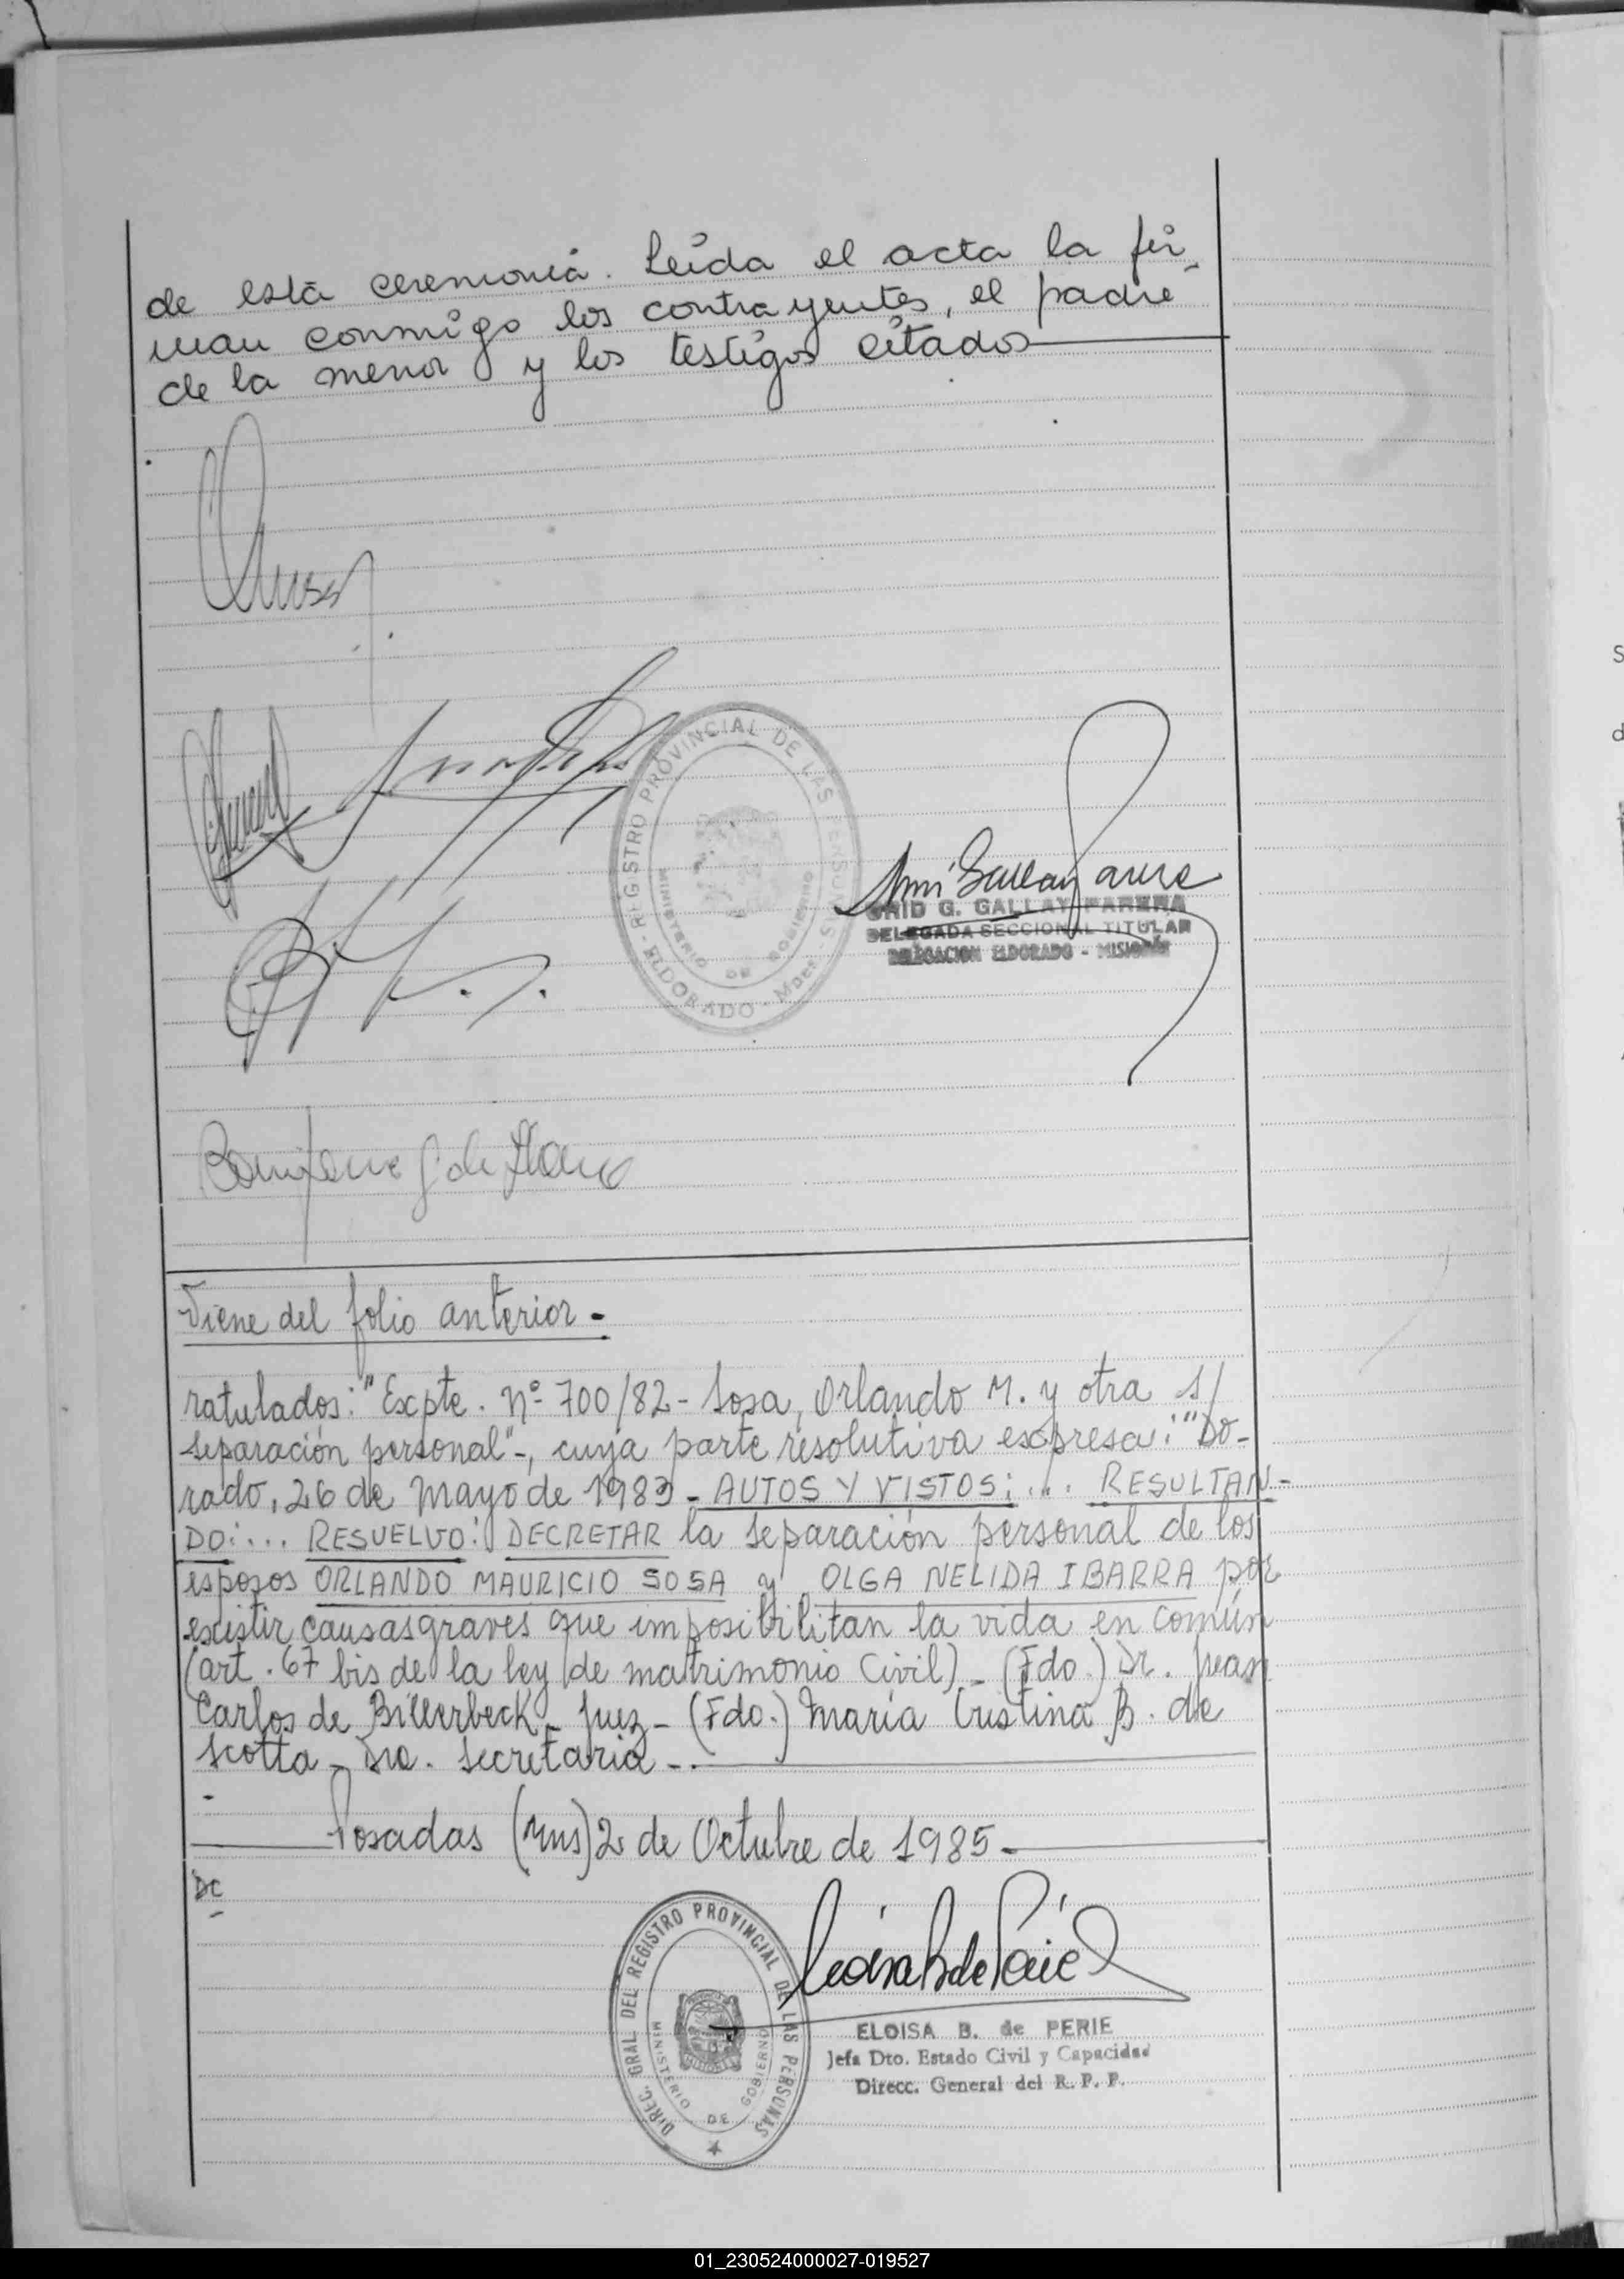 de esta ceremonia. Leida el acta la fir-
man conmigo los contrayentes, el padre
de la menor y los testigos citados
REGISTRO PROVINCIAL DE LAS PERSONAS
MINISTERIO DE GOBIERNO
ELDORADO - Mnes.
G. GALLAY PARERA
DELEGADA SECCIONAL TITULAR
DELEGACION ELDORADO - MISIONES
Viene del folio anterior.-
ratulados: "Expte. nº 700/82 - Sosa, Orlando M. y otra s/
separación personal"-, cuya parte resolutiva expresa: "Do-
rado, 26 de Mayo de 1983 - AUTOS Y VISTOS: ... RESULTAN-
DO: ... RESUELVO: DECRETAR la separación personal de los
esposos ORLANDO MAURICIO SOSA y OLGA NELIDA IBARRA por
existir causas graves que imposibilitan la vida en común
(art. 67 bis de la ley de matrimonio Civil) - (Fdo.) Dr. Juan
Carlos de Billerbeck - Juez - (Fdo.) María Cristina B. de
Scotta - Dra. Secretaria -.
Posadas (Mns) 2 de Octubre de 1985 -
DC
DIREC. GRAL DEL REGISTRO PROVINCIAL DE LAS PERSONAS
MINISTERIO DE GOBIERNO
ELOISA B. de PERIE
Jefa Dto. Estado Civil y Capacidad
Direcc. General del R. P. P.
01_230524000027-019527